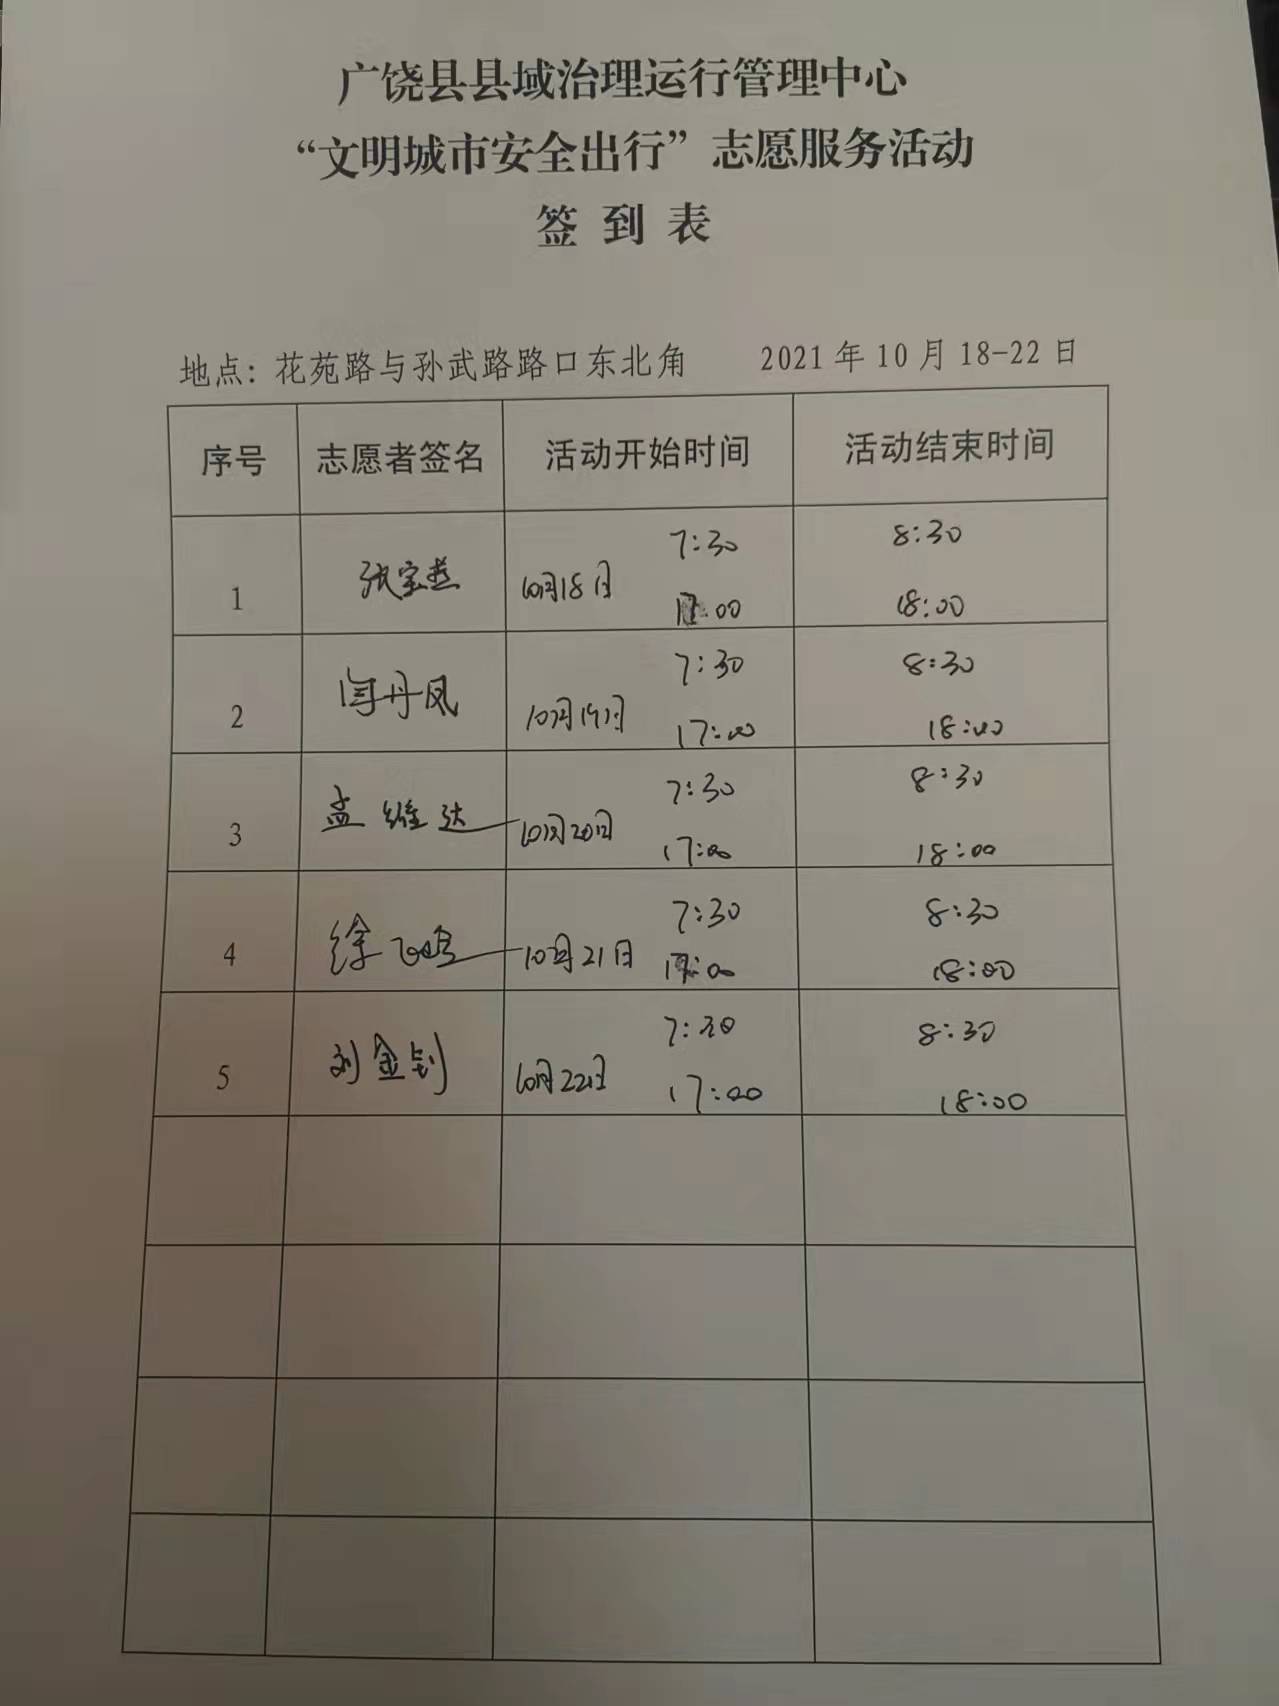 广饶县县域治理运行管理中心
“文明城市安全出行”志愿服务活动
签到表
地点：花苑路与孙武路路口东北角 2021年10月18-22日
序号 志愿者签名 活动开始时间 活动结束时间
7:30 8:30
1 张宝燕 10月18日
17:00 18:00
7:30 8:30
2 闫丹凤 10月19日
17:00 18:00
7:30 8:30
3 孟维达 10月20日
17:00 18:00
7:30 8:30
4 徐 10月21日
17:00 18:00
7:30 8:30
5 刘金钊 10月22日
17:00 18:00